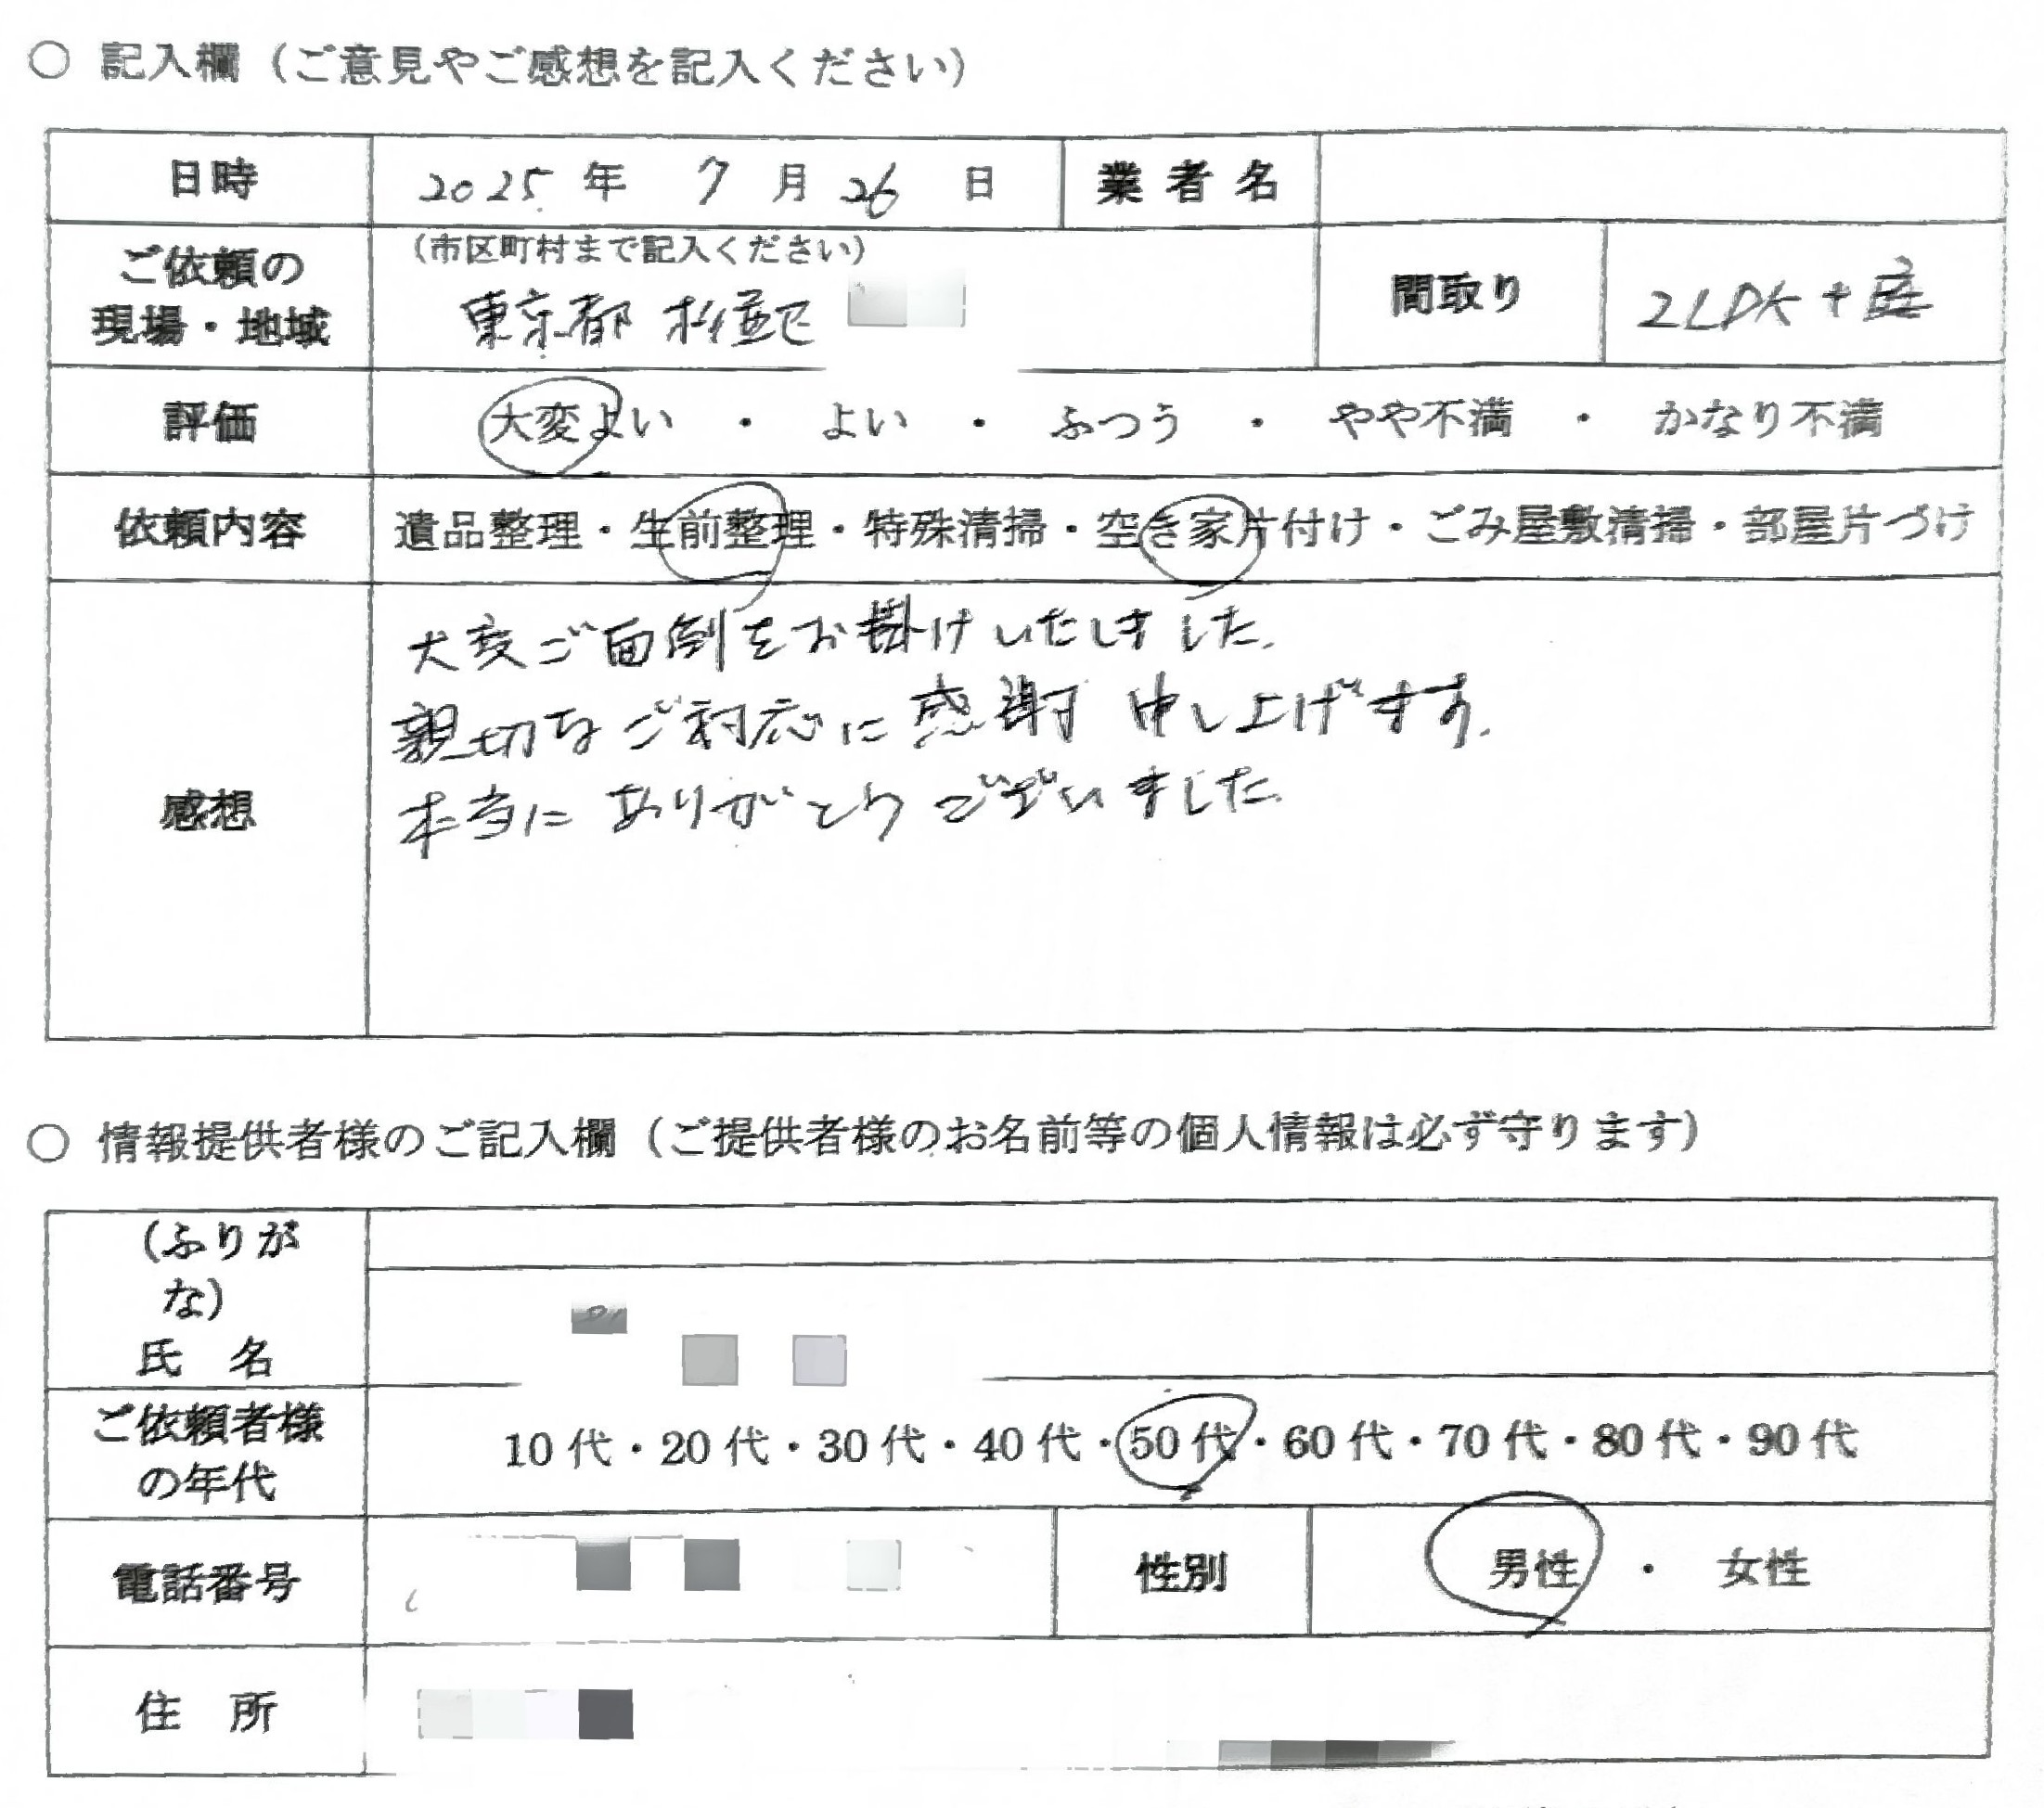 ○ 記入欄（ご意見やご感想を記入ください）
日時 2025 年 7 月 26 日 業者名
ご依頼の
現場・地域
（市区町村まで記入ください）
東京都 杉並区
間取り 2LDK + 庭
評価 大変よい ・ よい ・ ふつう ・ やや不満 ・ かなり不満
依頼内容 遺品整理・生前整理・特殊清掃・空き家片付け・ごみ屋敷清掃・部屋片づけ
感想
大変ご面倒をお掛けいたしました.
親切なご対応に感謝申し上げます.
本当にありがとうございました.
○ 情報提供者様のご記入欄（ご提供者様のお名前等の個人情報は必ず守ります）
（ふりが
な）
氏 名
ご依頼者様
の年代
10 代・20 代・30 代・40 代・50 代・60 代・70 代・80 代・90 代
電話番号 性別 男性 ・ 女性
住 所